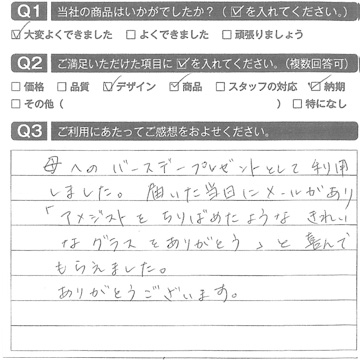 Q1 当社の商品はいかがでしたか?(☑を入れてください。)
☑大変よくできました □よくできました □頑張りましょう
Q2 ご満足いただけた項目に☑を入れてください。(複数回答可)
□価格 □品質 ☑デザイン ☑商品 □スタッフの対応 ☑納期
□その他( ) □特になし
Q3 ご利用にあたってご感想をおよせください。
母へのバースデープレゼントとして利用
しました。届いた当日にメールがあり
「アメジストをちりばめたようなきれい
なグラスをありがとう」と喜んで
もらえました。
ありがとうございます。